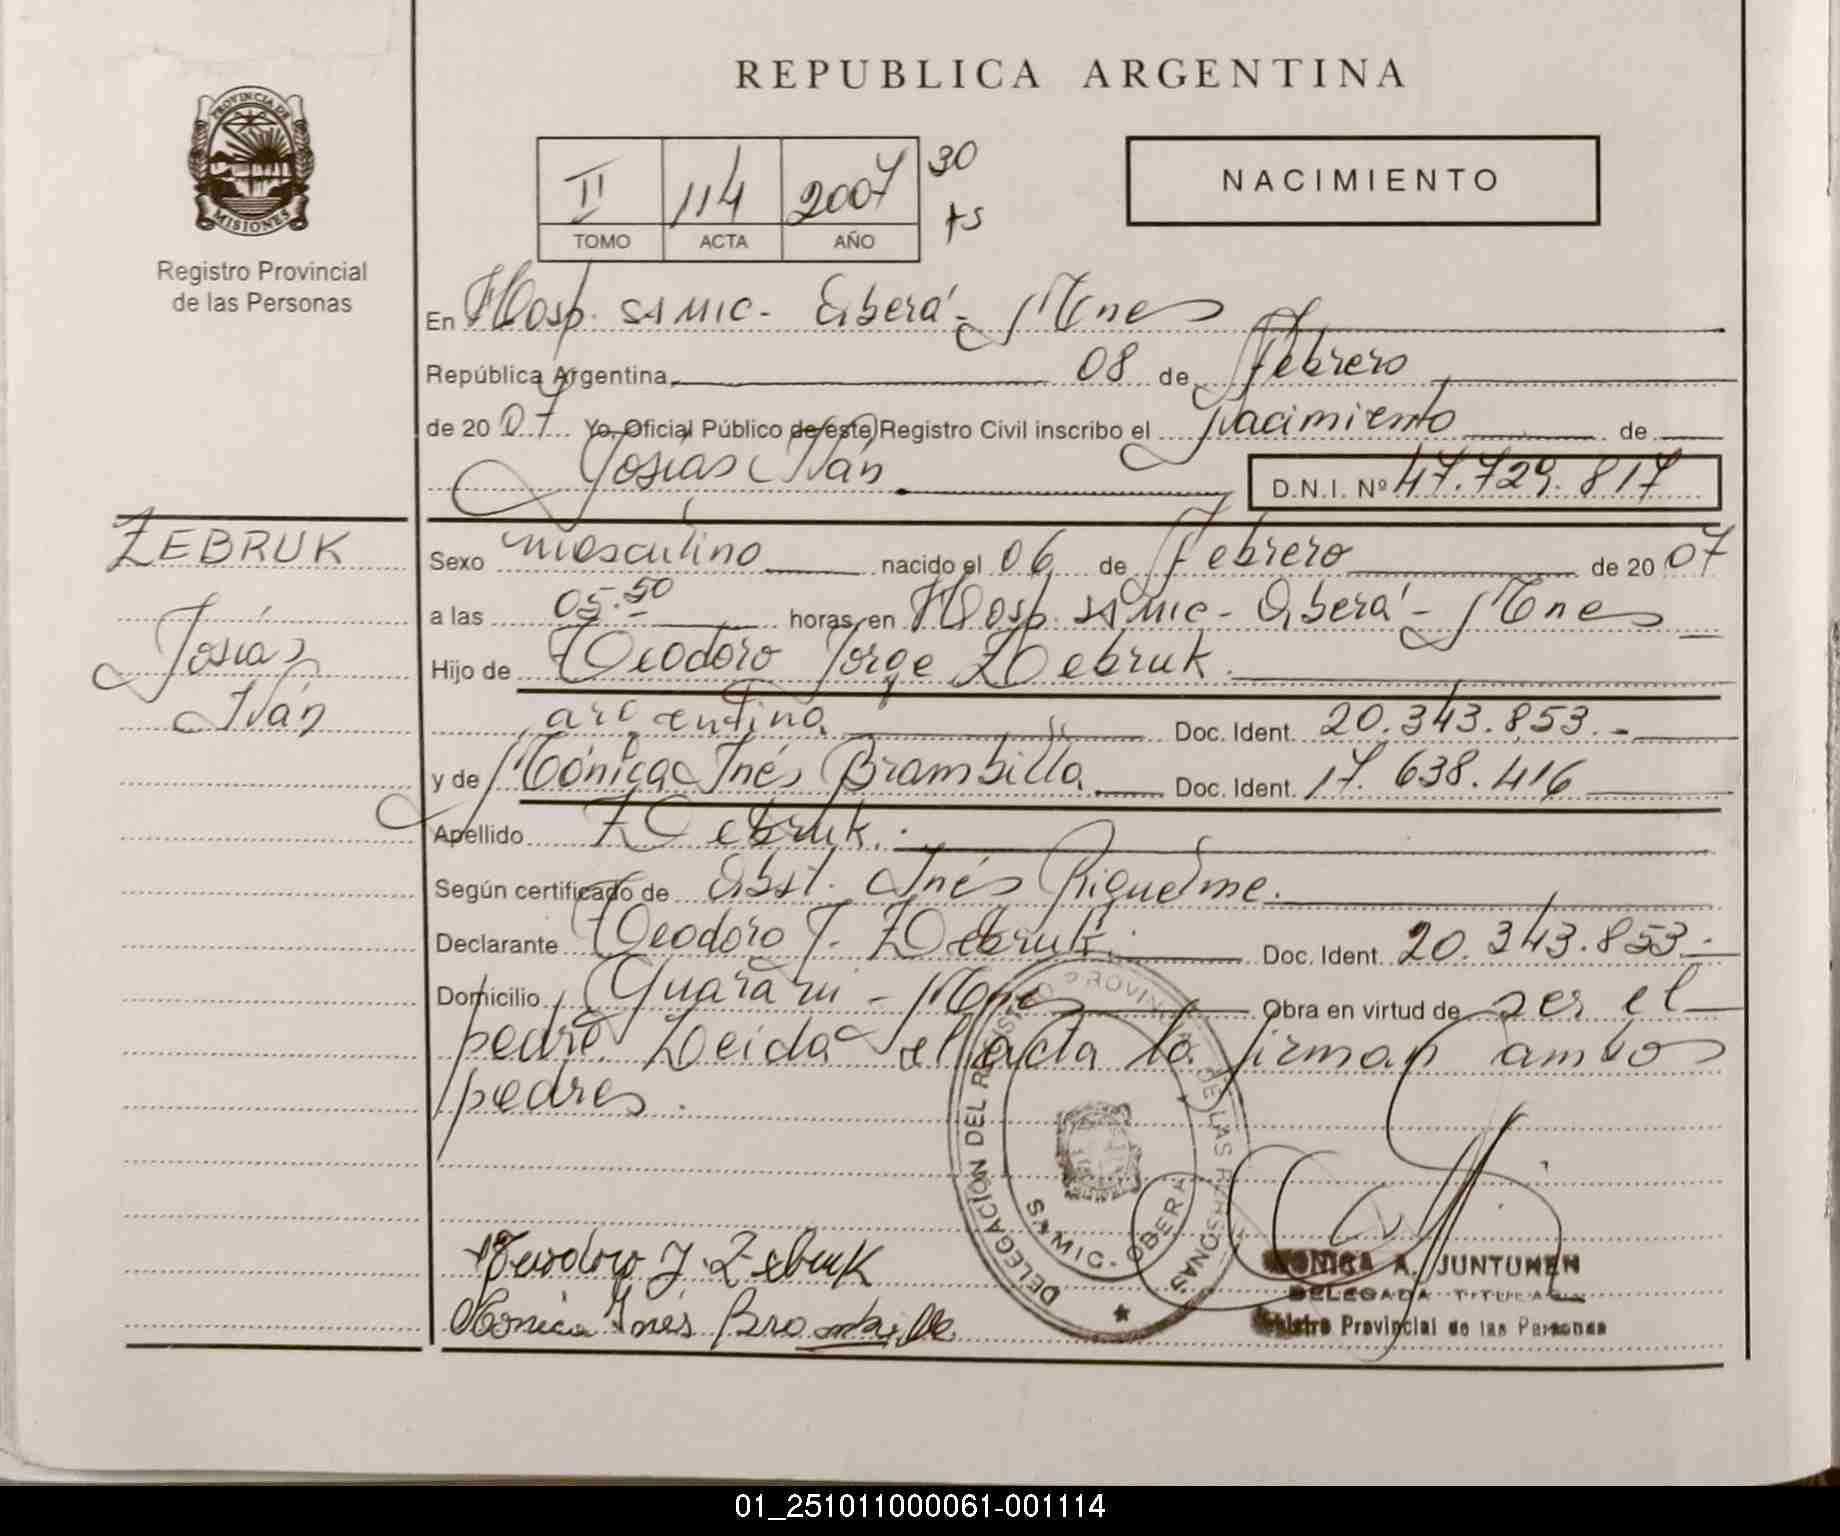 REPUBLICA ARGENTINA
PROVINCIA DE
MISIONES
Registro Provincial
de las Personas
II 114 2007 30
TOMO ACTA AÑO
NACIMIENTO
En Hosp. SAMIC- Oberá- Mnes
República Argentina, 08 de Febrero
de 20 07 Yo, Oficial Público de este Registro Civil inscribo el Nacimiento de
Josías Iván D.N.I. Nº 47.729.817
ZEBRUK
Josías
Iván
Sexo masculino nacido el 06 de Febrero de 20 07
a las 05.50 horas, en Hosp. SAMIC- Oberá- Mnes
Hijo de Teodoro Jorge Zebruk.
argentina Doc. Ident. 20.343.853.-
y de Mónica Inés Brambilla Doc. Ident. 17.638.416
Apellido Zebruk.
Según certificado de Obst. Inés Riquelme.
Declarante Teodoro J. Zebruk. Doc. Ident. 20.343.853.-
Domicilio Guaraní - Mnes Obra en virtud de ser el
padre. Leida el acta la firman ambos
padres.
DELEGACIÓN DEL REGISTRO PROVINCIAL DE LAS PERSONAS
SAMIC - OBERA
Teodoro J. Zebruk
Monica Inés Brambilla
MONICA A. JUNTUNEN
DELEGADA TITULAR
Registro Provincial de las Personas
01_251011000061-001114